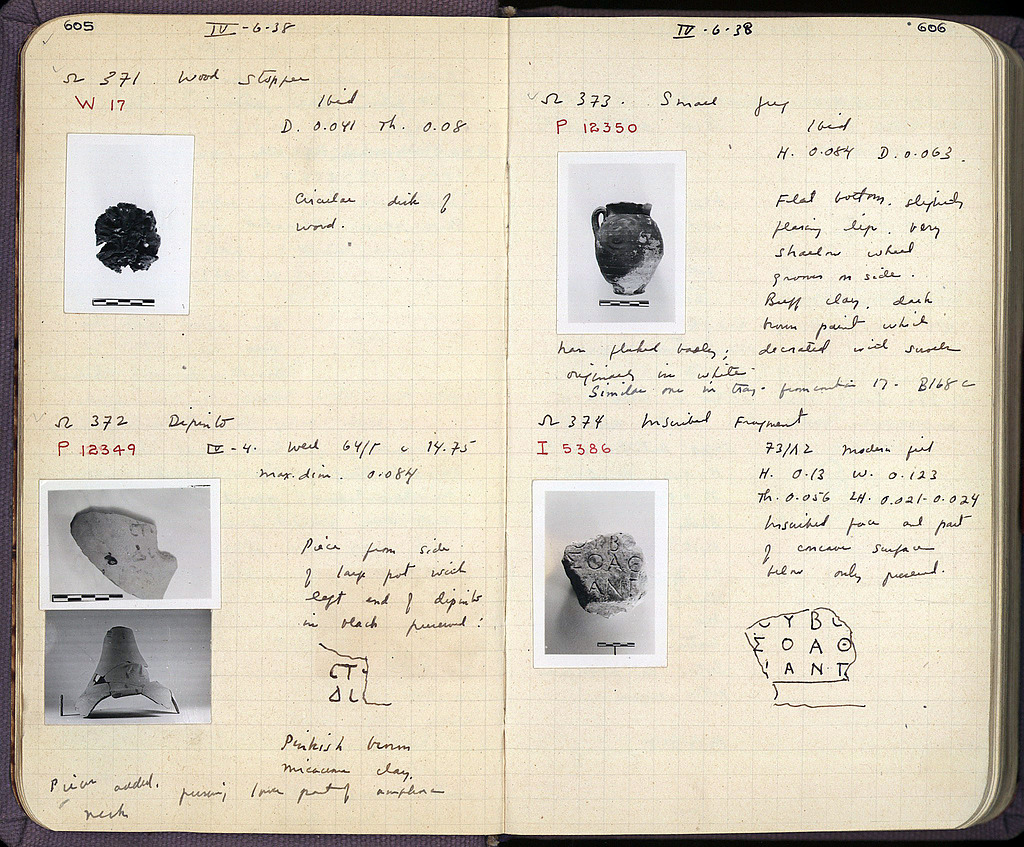 605
IV-6-38
Ω 371 Wood Stopper
W 17
Ibid
D. 0.041 Th. 0.08
Circular disk of
wood.
Ω 372 Dipinto
P 12349
IV-4. Well 64/Γ c 14.75
max. dim. 0.084
Piece from side
of large pot with
left end of dipinto
in black preserved:
ΔΙ
Pinkish brown
micaceous clay.
Piece added. preserving lower part of amphora
neck
IV-6-38
606
Ω 373. Small jug
P 12350
Ibid
H. 0.084 D. 0.063.
Flat bottom, slightly
flaring lip. very
shallow wheel
grooves on side.
Buff clay, dark
brown paint which
has flaked badly; decorated with
originally in white
Similar one in tray. from 17- B168 c
Ω 374 Inscribed Fragment
I 5386
73/Λ2 modern fill
H. 0.13 W. 0.123
Th. 0.056 LH. 0.021-0.024
Inscribed face and part
of concave surface
below only preserved.
ΥΒ
ΣΟΑΘ
ΑΝΤ